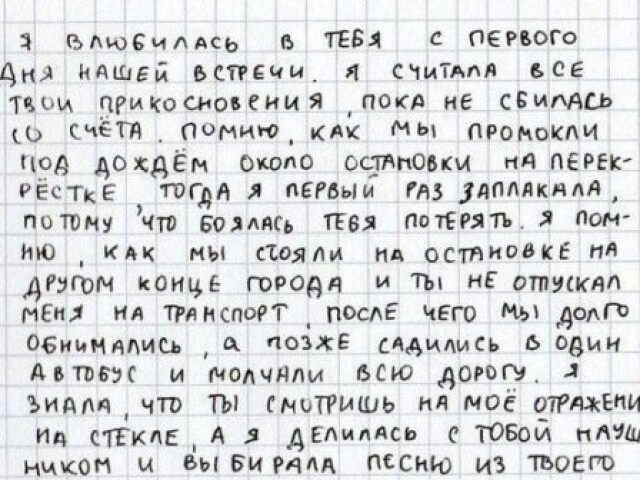 Я ВЛЮБИЛАСЬ В ТЕБЯ С ПЕРВОГО
ДНЯ НАШЕЙ ВСТРЕЧИ. Я СЧИТАЛА ВСЕ
ТВОИ ПРИКОСНОВЕНИЯ, ПОКА НЕ СБИЛАСЬ
СО СЧЁТА. ПОМНЮ, КАК МЫ ПРОМОКЛИ
ПОД ДОЖДЁМ ОКОЛО ОСТАНОВКИ НА ПЕРЕК-
РЁСТКЕ, ТОГДА Я ПЕРВЫЙ РАЗ ЗАПЛАКАЛА,
ПОТОМУ ЧТО БОЯЛАСЬ ТЕБЯ ПОТЕРЯТЬ. Я ПОМ-
НЮ, КАК МЫ СТОЯЛИ НА ОСТАНОВКЕ НА
ДРУГОМ КОНЦЕ ГОРОДА И ТЫ НЕ ОТПУСКАЛ
МЕНЯ НА ТРАНСПОРТ, ПОСЛЕ ЧЕГО МЫ ДОЛГО
ОБНИМАЛИСЬ, А ПОЗЖЕ САДИЛИСЬ В ОДИН
АВТОБУС И МОЛЧАЛИ ВСЮ ДОРОГУ. Я
ЗНАЛА, ЧТО ТЫ СМОТРИШЬ НА МОЁ ОТРАЖЕНИ
НА СТЕКЛЕ, А Я ДЕЛИЛАСЬ С ТОБОЙ НАУШ
НИКОМ И ВЫБИРАЛА ПЕСНЮ ИЗ ТВОЕГО